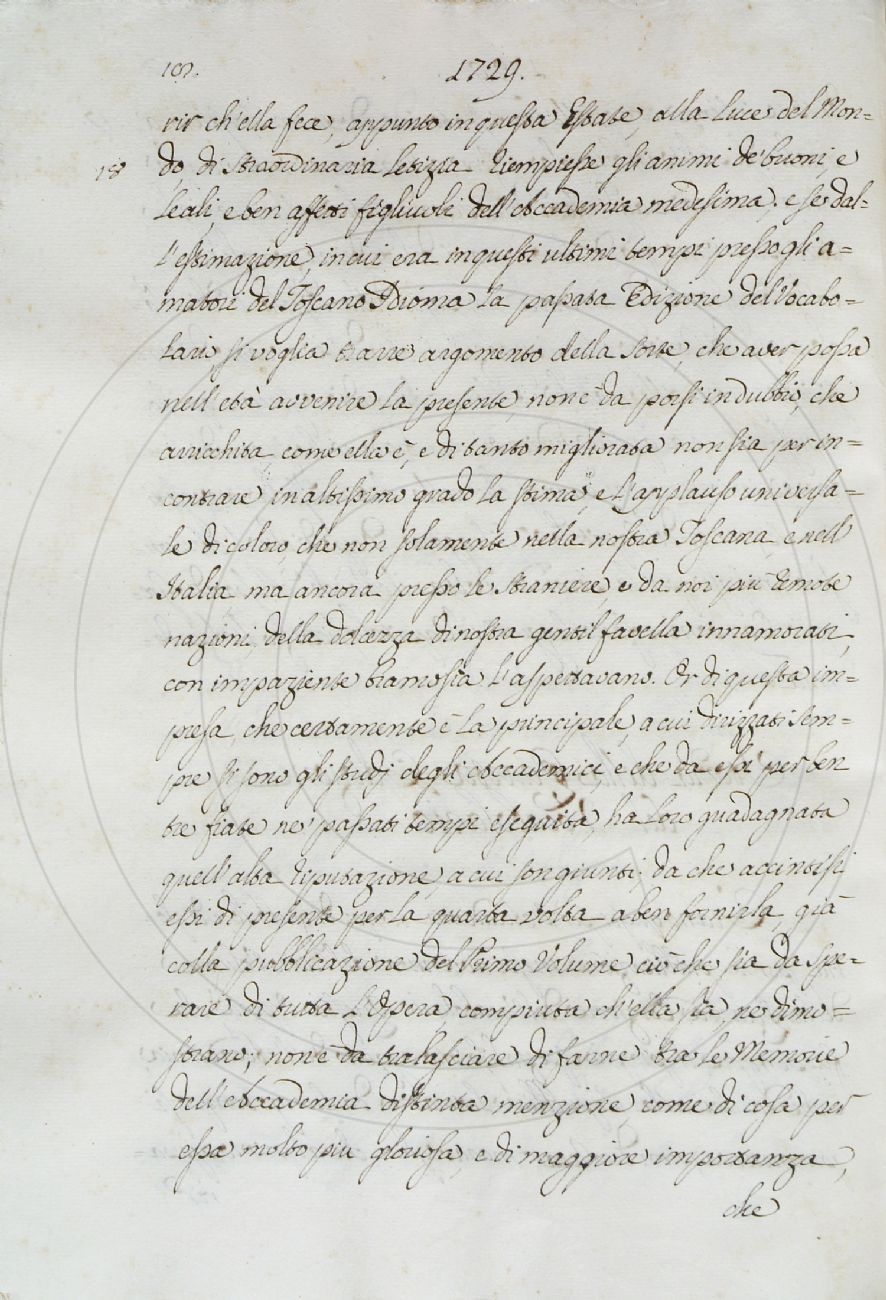 1729.
rir ch'ella fece, appunto in questa Estate, alla Luce del Mon=
do, di straordinaria Letizia riempiesse gli animi de' buoni, e
Leali, e ben affetti figliuoli dell'Accademia medesima; e se dal=
l'estimazione, in cui era in questi ultimi tempi presso gli a=
matori del Toscano Idioma La passata Edizione del Vocabo=
lario si voglia trarre argomento della sorte, che aver possa
nell'età avvenire La presente non è da porsi in dubbio, che
arricchita, come ella è, e di tanto migliorata non sia per in=
contrare in altissimo grado La stima, e L'applauso universa=
le di coloro, che non solamente nella nostra Toscana, e nell'
Italia, ma ancora presso le straniere, e da noi più remote
nazioni, della dolcezza di nostra gentil favella innamorati,
con impaziente bramosia L'aspettavano. Or di questa im=
presa, che certamente è La principale, a cui dirizzati sem=
pre si sono gli studj degli Accademici, e che da essi per ben
tre fiate ne' passati tempi eseguita, ha Loro guadagnata
quell'alta riputazione, a cui son giunti; da che accintisi
essi di presente per La quarta volta a ben fornirla, già
colla pubblicazione del Primo Volume ciò che sia da spe=
rare di tutta L'Opera, compiuta ch'ella sia, ne dimo=
strano; non è da tralasciare di farne tra le Memorie
dell'Accademia distinta menzione, come di cosa per
essa molto più gloriosa, e di maggiore importanza,
che